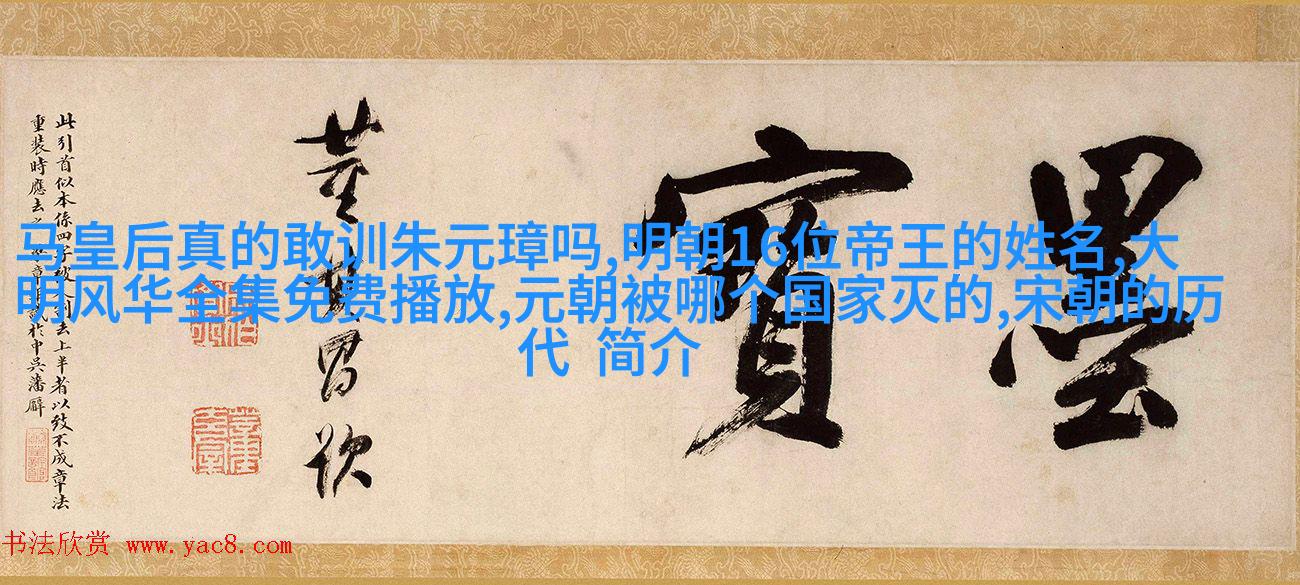 墨寶
董其昌
此引首似本係四字被 去上半者以致不成章法
重装時應去 章 於中吳潘廨
马皇后真的敢训朱元璋吗,明朝16位帝王的姓名,大
明风华全集免费播放,元朝被哪个国家灭的,宋朝的历
代 简介
书法欣赏 www.yac8.com